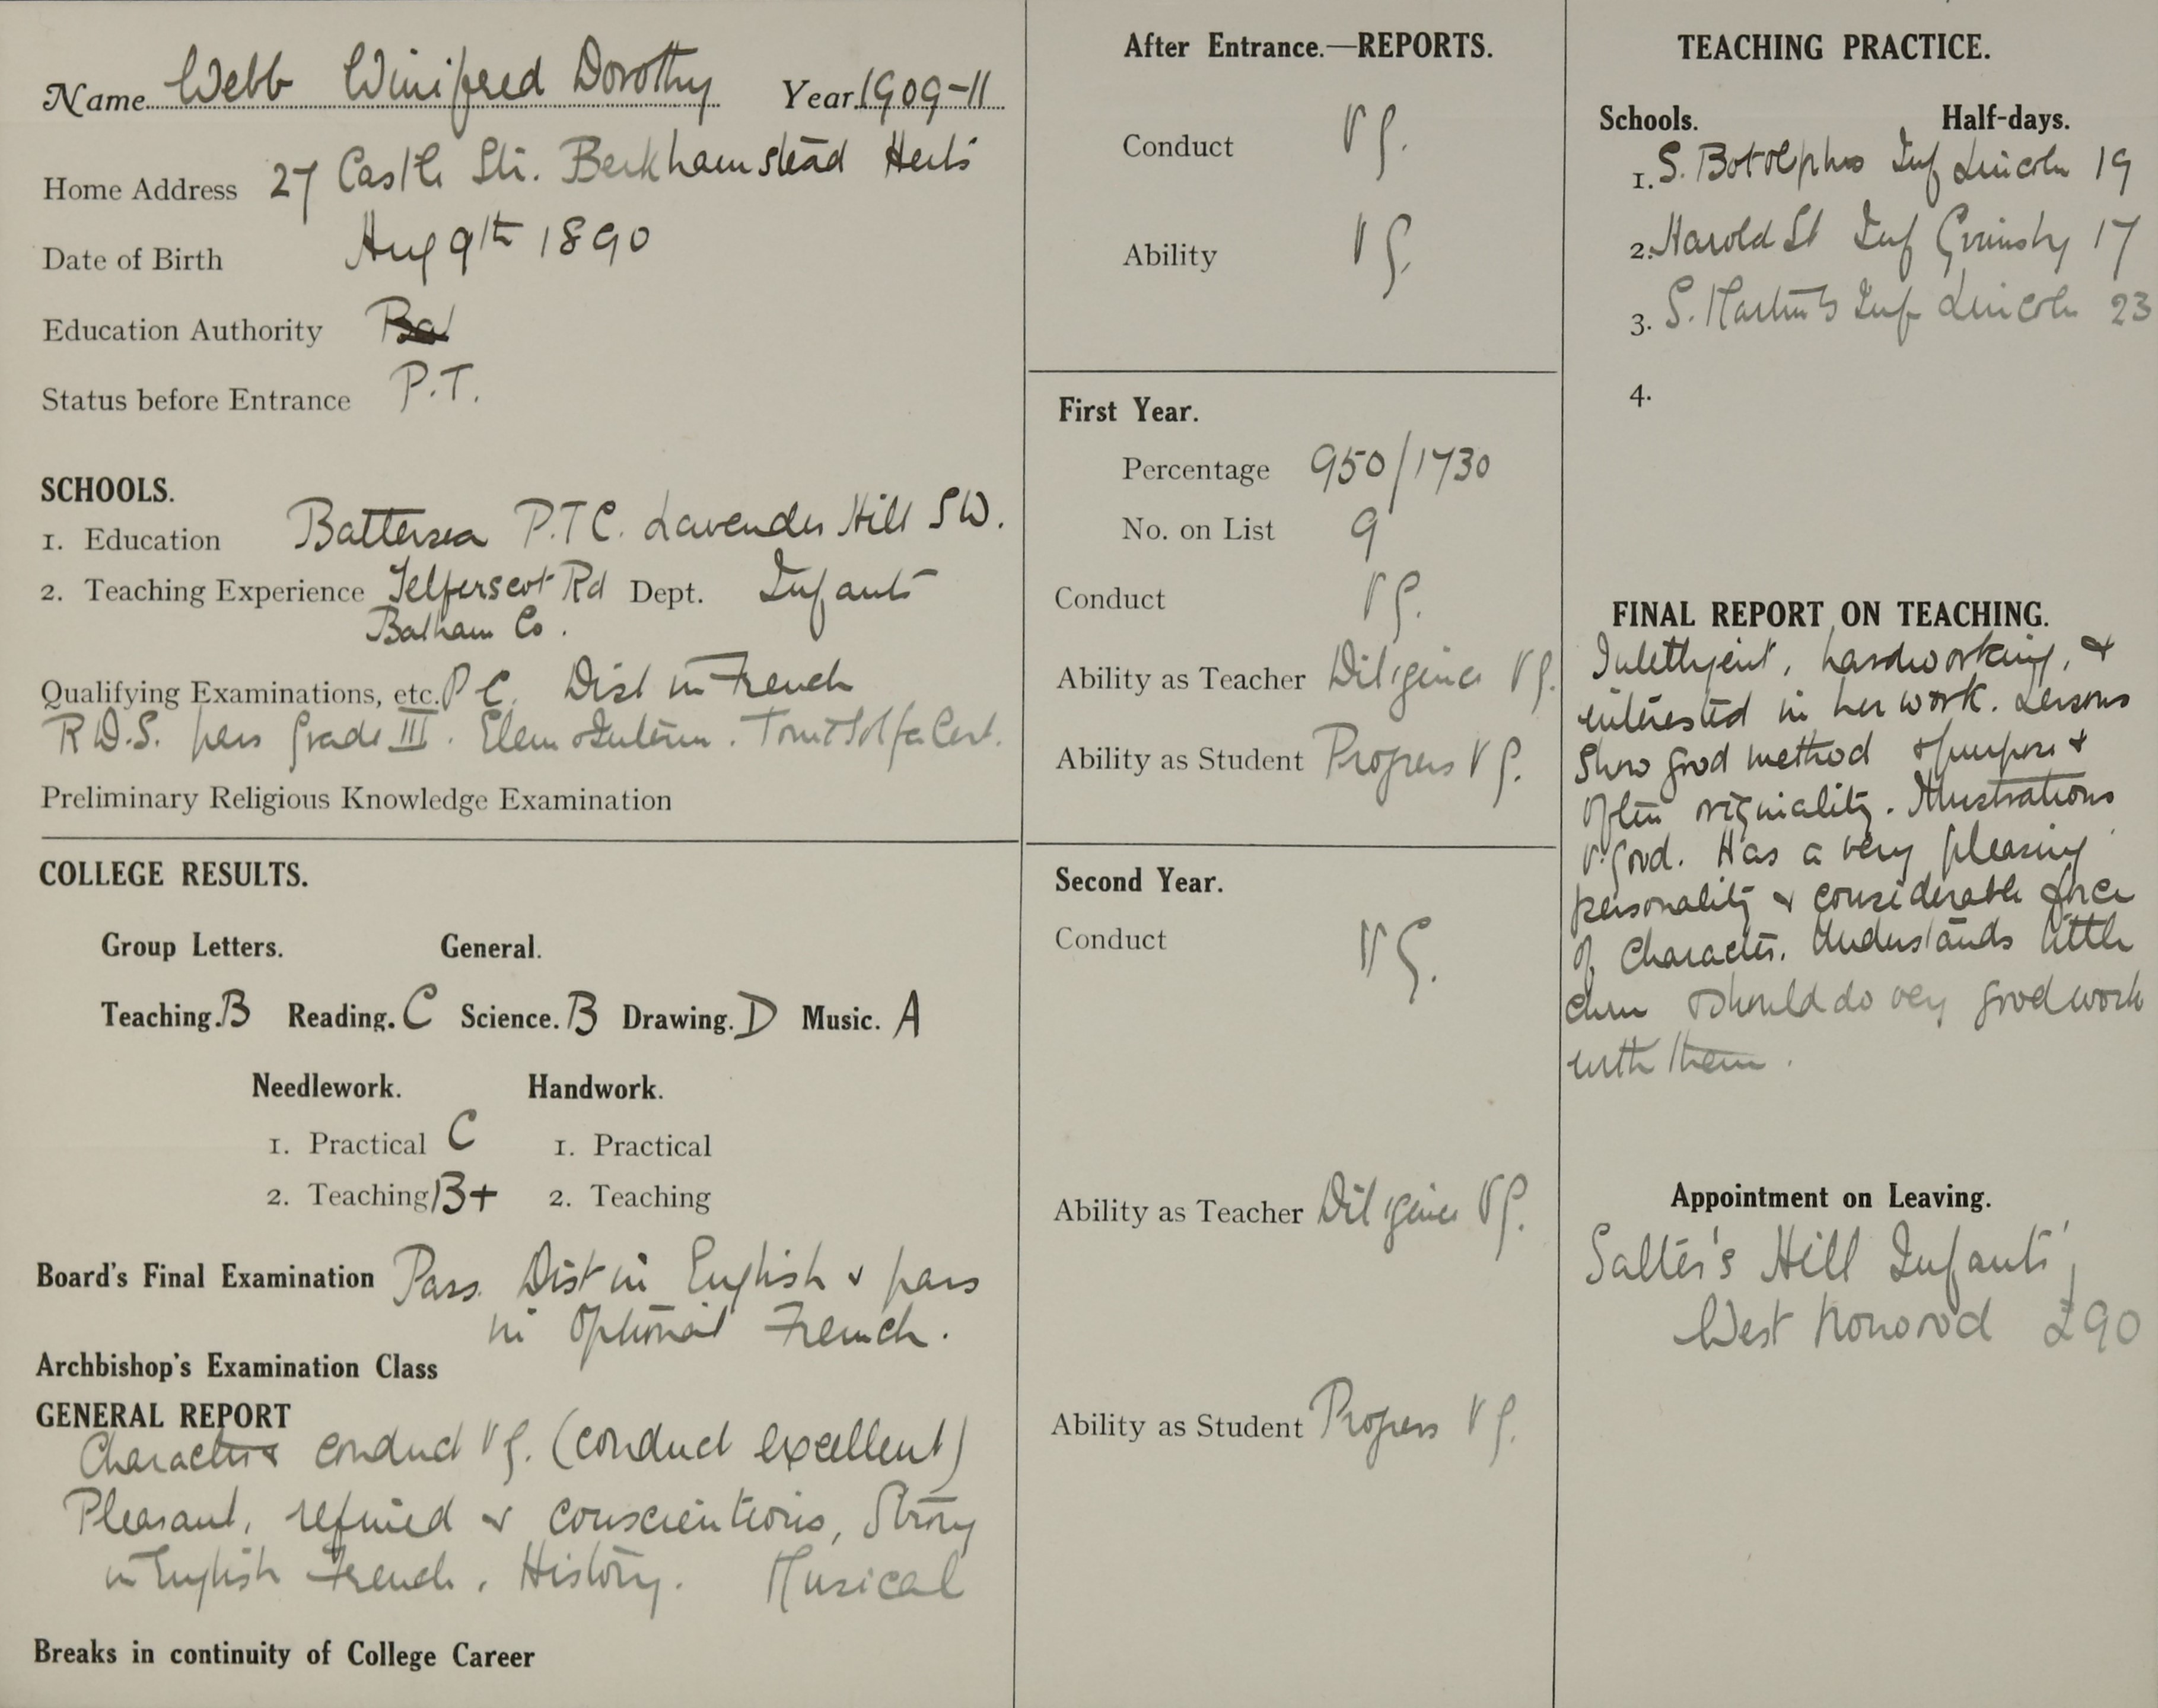 Name Webb Winifred Dorothy Year 1909-11
Home Address 27 Castle Str. Berkhamstead Herts
Date of Birth Aug 9th 1890
Education Authority
Status before Entrance P.T.
SCHOOLS.
1. Education Battersea P.T.C. Lavender Hill S.W.
2. Teaching Experience Telferscot Rd Dept. Infants
Balham Co.
Qualifying Examinations, etc. P.C. Dist in French
R.D.S. pass grade III. Elem & Interm. Tonic Solfa Cert.
Preliminary Religious Knowledge Examination
COLLEGE RESULTS.
Group Letters. General.
Teaching. B Reading. C Science. B Drawing. D Music. A
Needlework. Handwork.
1. Practical C 1. Practical
2. Teaching B+ 2. Teaching
Board's Final Examination Pass. Dist in English & pass
in Optional French.
Archbishop's Examination Class
GENERAL REPORT
Character & conduct V.g. (conduct excellent)
Pleasant, refined & conscientious, Strong
in English French, History. Musical
Breaks in continuity of College Career
After Entrance.—REPORTS.
Conduct V g.
Ability V g.
First Year.
Percentage 950/1730
No. on List 9
Conduct V g.
Ability as Teacher Diligence V g.
Ability as Student Progress V g.
Second Year.
Conduct V G.
Ability as Teacher Diligence V g.
Ability as Student Progress V g.
TEACHING PRACTICE.
Schools. Half-days.
1. S. Botolphs Inf Lincoln 19
2. Harold St Inf Grimsby 17
3. S. Martin's Inf Lincoln 23
4.
FINAL REPORT ON TEACHING.
Intelligent, hardworking, &
interested in her work. Lessons
show good method & purpose &
often originality. Illustrations
v. good. Has a very pleasing
personality & considerable force
of character. Understands little
chn & should do very good work
with them.
Appointment on Leaving.
Salter's Hill Infants'
West Norwood £90